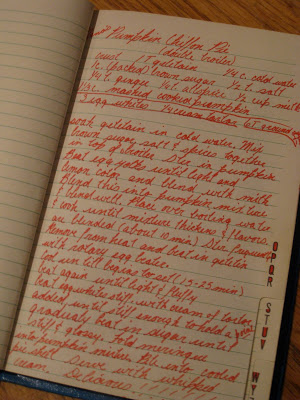 Pumpkin Chiffon Pie
(double broiler)
crust 1 T gelatain 1/4 c. cold water
(packed) brown sugar 1/2 t. salt
1/2 t. ginger 1/4 t. allspice 1/2 cup milk
mashed cooked pumpkin
3 egg whites 1/4 cream tartar 6T
soak gelatain in cold water. Mix
brown sugar salt & spices together
in top of broiler. Stir in pumpkin
Beat egg yolks until light and
lemon color and blend with milk
Blend this into pumpkin mixture
blend well. Place over boiling water
& cook until mixture thickens & flavors
are blended (about 10 min) Stir frequently
Remove from heat and beat in gelatin
with rotary egg beater.
Cool until begins to set (15-25 min)
beat again until light & fluffy
beat egg whites stiff with cream of tartar
added until stiff enough to hold a peak
gradualy beat in sugar until
stiff & glossy. Fold meringue
into pumpkin mixture. Pile into cooled
pie shell. Serve with whipped
cream. Delicious!!!
O P Q R
S T U V
W